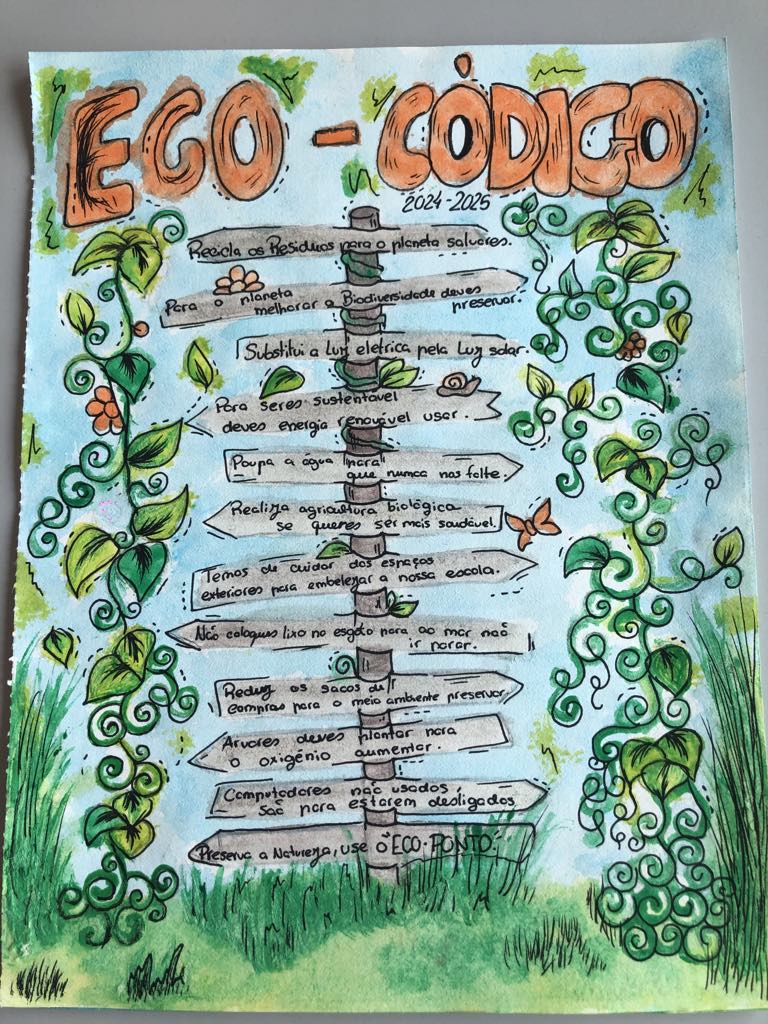 ECO - CÓDIGO
2024-2025
Recicla os Resíduos para o planeta salvares.
Para o planeta
melhorar a Biodiversidade deves preservar.
Substitui a Luz eletrica pela Luz solar.
Para seres sustentável
deves energia renovável usar.
Poupa a água para
que nunca nos falte.
Realiza agricultura biológica
se queres ser mais saudável.
Temos de cuidar dos espaços
exteriores para embelezar a nossa escola.
Não coloques lixo no esgoto para ao mar não
ir parar.
Reduz os sacos de
compras para o meio ambiente preservar
Árvores deves plantar para
o oxigénio aumentar.
Computadores não usados,
são para estarem desligados
Preserva a Natureza, use o "ECO-PONTO".